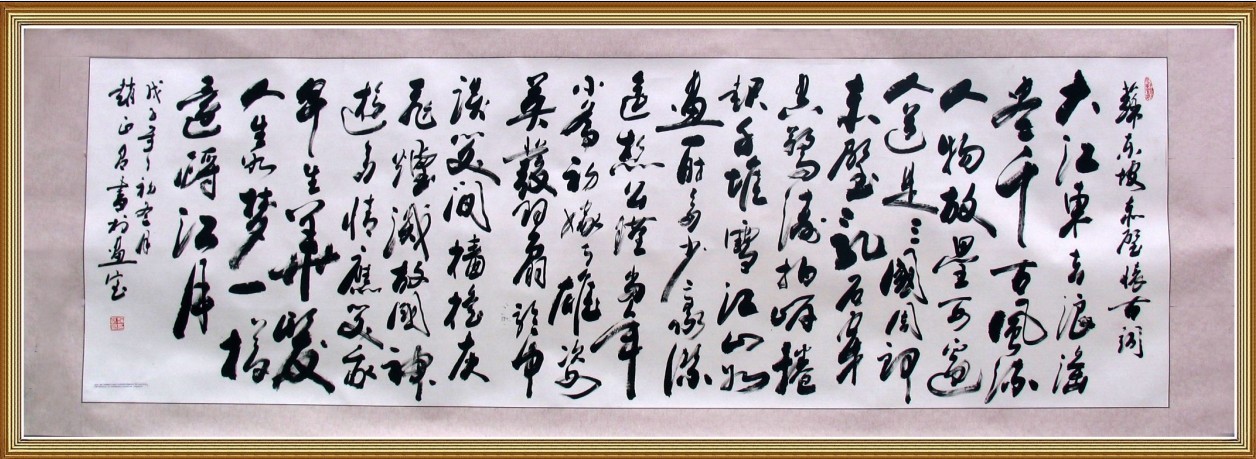 蘇東坡赤壁懷古詞
大江東去浪淘
盡千古風流
人物故壘西邊
人道是三國周郎
赤壁亂石穿
空驚濤拍岸捲
起千堆雪江山如
畫一時多少豪傑
遙想公瑾當年
小喬初嫁了雄姿
英發羽扇綸巾
談笑間檣櫓灰
飛煙滅故國神
遊多情應笑我
早生華髮
人生如夢一樽
還酹江月
戊子年初冬月
趙正書於畫室